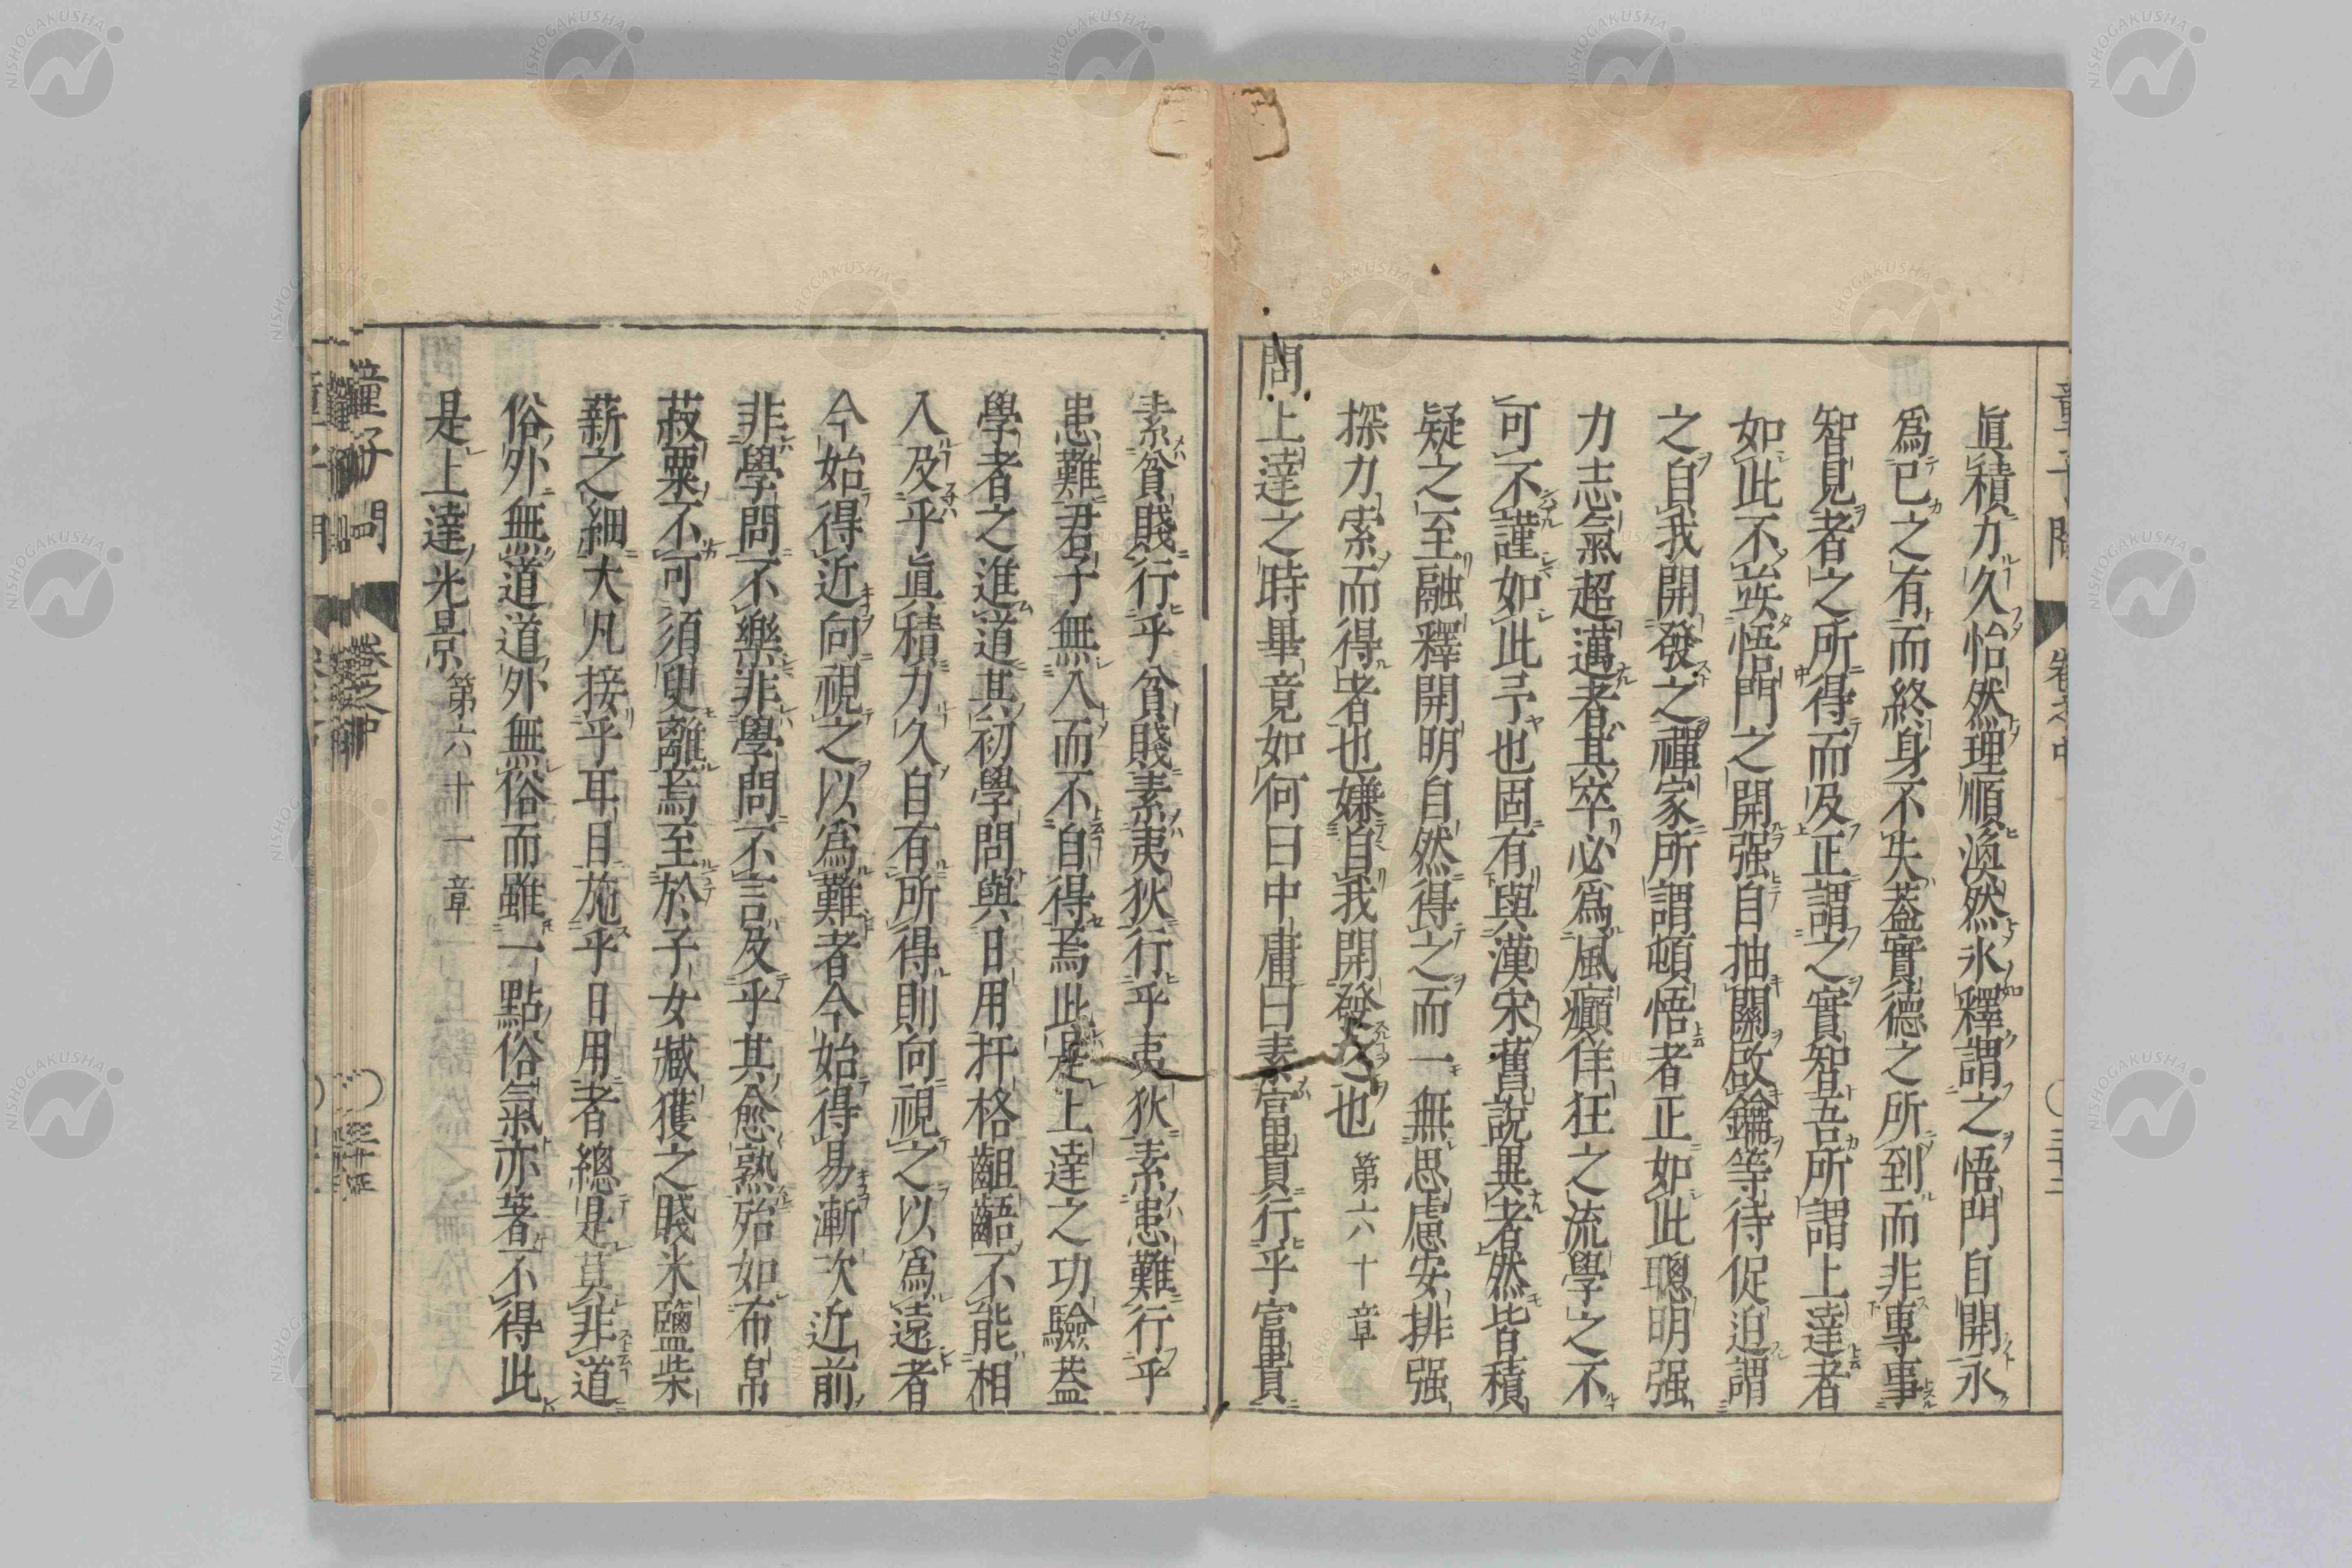 眞積力久怡然理順渙然氷釋謂之悟門自開永
爲已之有而終身不失蓋實德之所到而非專事
智見者之所得而及正謂之實智吾所謂上達者
如此不竢悟門之開强自抽關啟鑰等待促迫謂
之自我開發之禪家所謂頓悟者正如此聰明强
力志氣超邁者其卒必爲風癲佯狂之流學之不
可不謹如此予也固有與漢宋舊說異者然皆積
疑之至融釋開明自然得之而一無思慮安排强
探力索而得者也嫌自我開發之也 第六十章
問上達之時畢竟如何曰中庸曰素富貴行乎富貴
素貧賤行乎貧賤素夷狄行乎夷狄素患難行乎
患難君子無入而不自得焉此是上達之功驗蓋
學者之進道其初學問與日用扞格齟齬不能相
入及乎眞積力久自有所得則向視之以爲遠者
今始得近向視之以爲難者今始得易漸次近前
非學問不樂非學問不言及乎其愈熟殆如布帛
菽粟不可須臾離焉至於子女臧獲之賤米鹽柴
薪之細大凡接乎耳目施乎日用者總是莫非道
俗外無道道外無俗而雖一點俗氣亦著不得此
是上達光景 第六十一章
童子問 卷之中
NISHOGAKUSHA